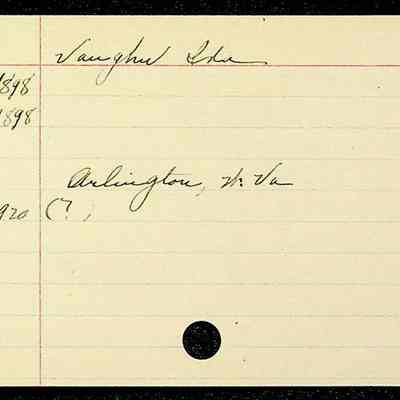 Vaughn Ida
1898
1898
Arlington, W. Va
920 (?)